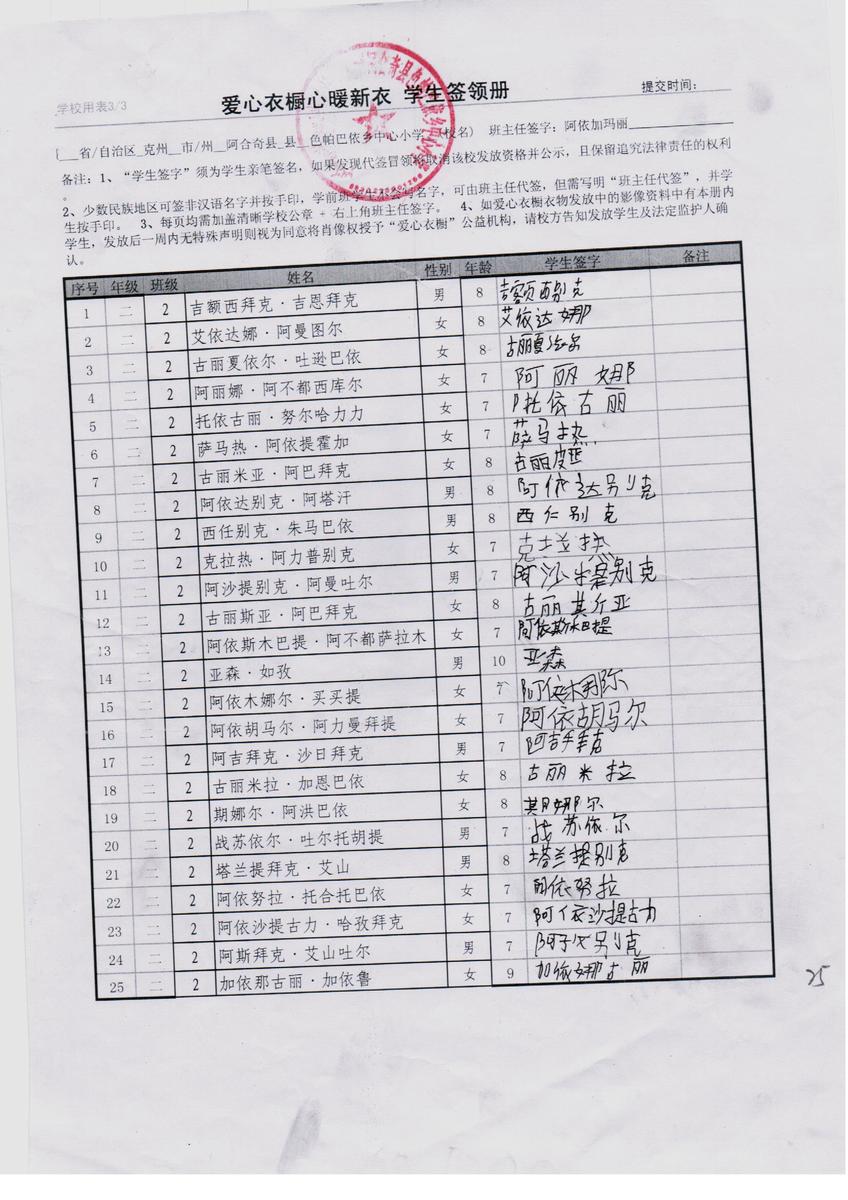 学校用表3/3
爱心衣橱心暖新衣 学生签领册
提交时间:
省/自治区_克州__市/州__阿合奇县_县__色帕巴依乡中心小学__(校名) 班主任签字:阿依加玛丽
备注:1、“学生签字”须为学生亲笔签名,如果发现代签冒领将取消该校发放资格并公示,且保留追究法律责任的权利
。
2、少数民族地区可签非汉语名字并按手印,学前班学生不会写名字,可由班主任代签,但需写明“班主任代签”,并学
生按手印。 3、每页均需加盖清晰学校公章 + 右上角班主任签字。 4、如爱心衣橱衣物发放中的影像资料中有本册内
学生,发放后一周内无特殊声明则视为同意将肖像权授予“爱心衣橱”公益机构,请校方告知发放学生及法定监护人确
认。
序号 年级 班级 姓名 性别 年龄 学生签字 备注
1 二 2 吉额西拜克·吉恩拜克 男 8 吉额西别克
2 二 2 艾依达娜·阿曼图尔 女 8 艾依达娜
3 二 2 古丽夏依尔·吐逊巴依 女 8 古丽夏依尔
4 二 2 阿丽娜·阿不都西库尔 女 7 阿丽娜
5 二 2 托依古丽·努尔哈力力 女 7 托依古丽
6 二 2 萨马热·阿依提霍加 女 7 萨马热
7 二 2 古丽米亚·阿巴拜克 女 8 古丽
8 二 2 阿依达别克·阿塔汗 男 8 阿依达别克
9 二 2 西任别克·朱马巴依 男 8 西仁别克
10 二 2 克拉热·阿力普别克 女 7 克
11 二 2 阿沙提别克·阿曼吐尔 男 7 阿沙 别克
12 二 2 古丽斯亚·阿巴拜克 女 8 古丽其斤亚
13 二 2 阿依斯木巴提·阿不都萨拉木 女 7 阿依斯木巴提
14 二 2 亚森·如孜 男 10 亚森
15 二 2 阿依木娜尔·买买提 女 7 阿依木娜尔
16 二 2 阿依胡马尔·阿力曼拜提 女 7 阿依胡马尔
17 二 2 阿吉拜克·沙日拜克 男 7 阿吉
18 二 2 古丽米拉·加恩巴依 女 8 古丽米拉
19 二 2 期娜尔·阿洪巴依 女 8 其月娜尔
20 二 2 战苏依尔·吐尔托胡提 男 7 战苏依尔
21 二 2 塔兰提拜克·艾山 男 8 塔兰提别克
22 二 2 阿依努拉·托合托巴依 女 7 阿依努拉
23 二 2 阿依沙提古力·哈孜拜克 女 7 阿依沙提古力
24 二 2 阿斯拜克·艾山吐尔 男 7 别克
25 二 2 加依那古丽·加依鲁 女 9 加依娜古丽
25